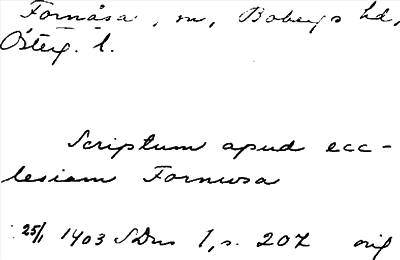 Fornåsa, sn, Bobergs hd,
Österg. l.
Scriptum apud ecc-
lesiam Fornusa
25/1 1403 SDns 1, s. 207 orig